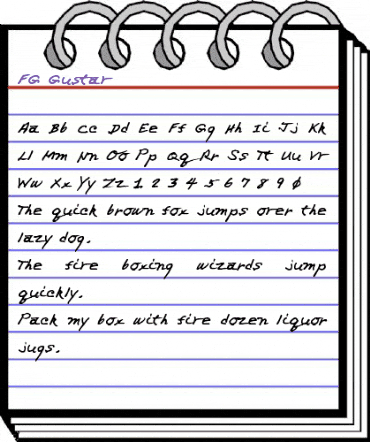 FG Gustav
Aa Bb Cc Dd Ee Ff Gg Hh Ii Jj Kk
Ll Mm Nn Oo Pp Qq Rr Ss Tt Uu Vv
Ww Xx Yy Zz 1 2 3 4 5 6 7 8 9 0
The quick brown fox jumps over the
lazy dog.
The fire boxing wizards jump
quickly.
Pack my box with fire dozen liquor
jugs.